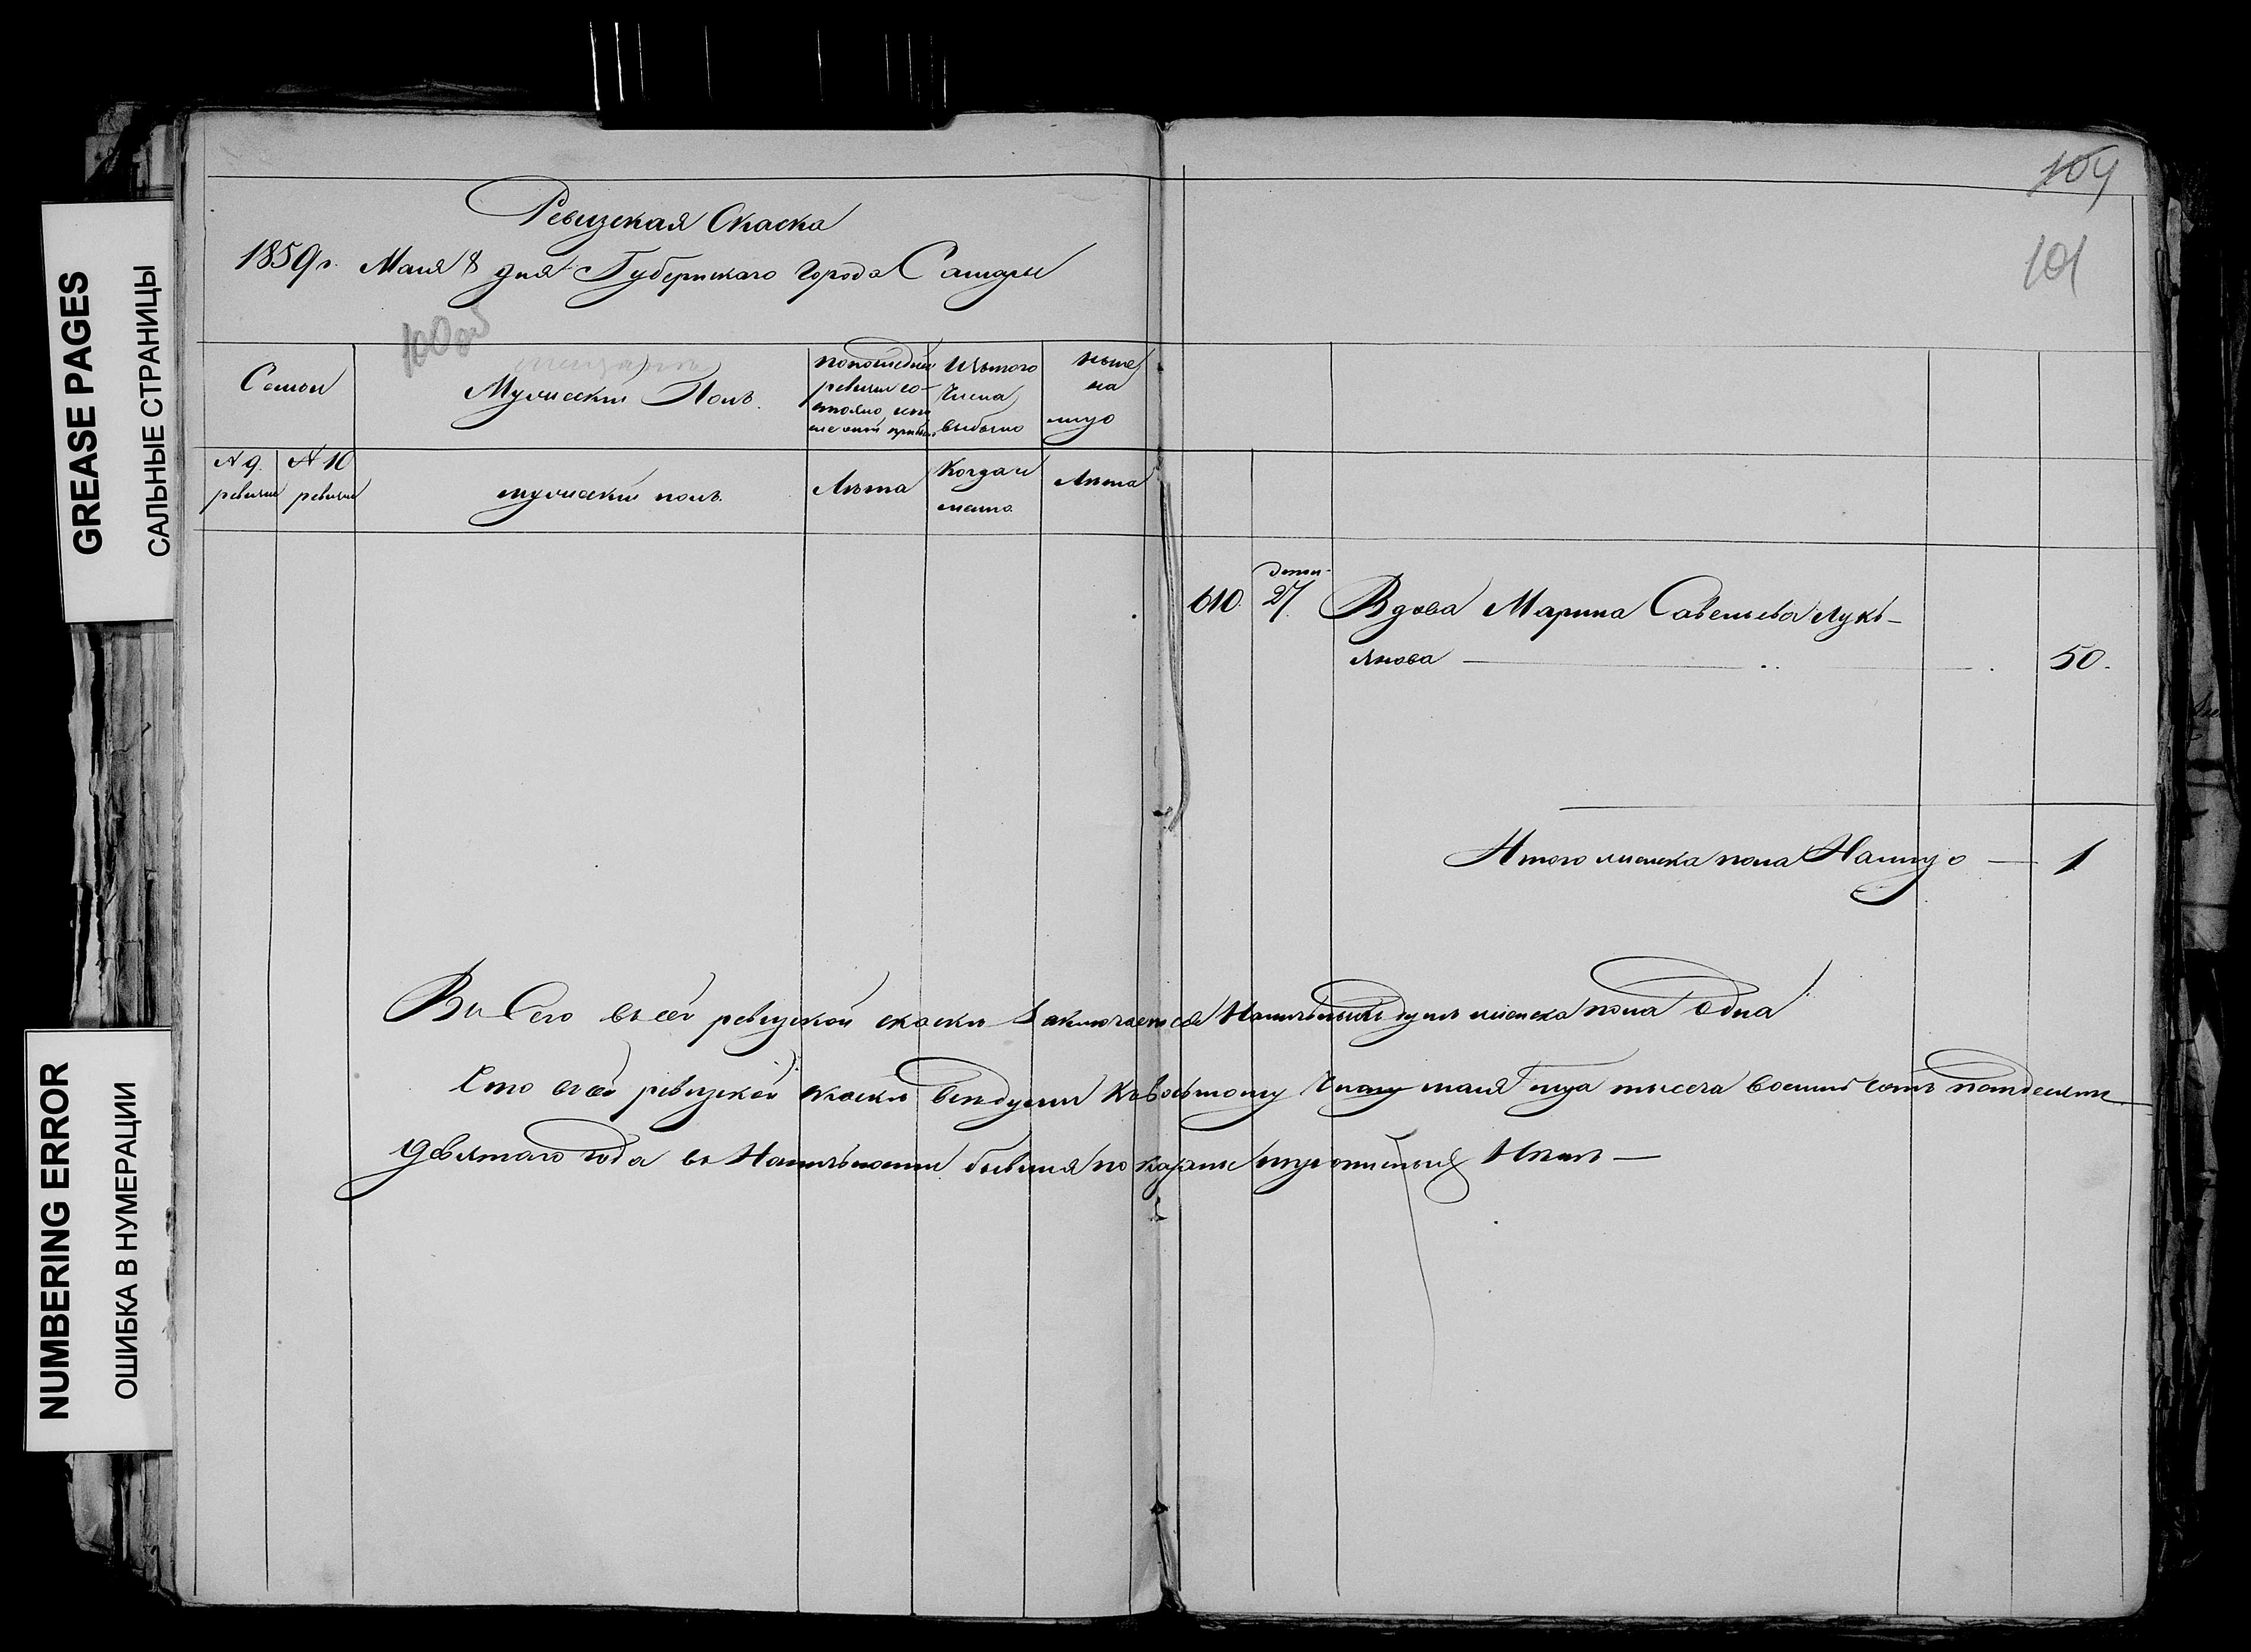 GREASE PAGES
САЛЬНЫЕ СТРАНИЦЫ
NUMBERING ERROR
ОШИБКА В НУМЕРАЦИИ
Ревизская Скаска
1859 г. Маия 8 дня Губернскаго Города Самары
100 об
мещанъ
Семьи
Мужескій Полъ.
по последней ревизіи со-
стояло, или
после оной прибыло
Изъ того
числа
выбыло
ныне
на
лицо
№ 9 ревизіи
№ 10 ревизіи
мужескій полъ
Лѣта
Когда и
имянно
Лѣта
104
101
610.
27.
Вдова Марина Савельева Лукь-
янова
50.
Итого женска пола На лицо — 1
Всего в сей ревизской скаске Заключается Наличныхъ душъ женска пола Одна
Что в сей ревизской скаске все души къ восьмому Числу маия тысеча восемь сотъ пятдесятъ
девятаго года въ Наличности бывшия показаны и пропущенныхъ Нетъ —